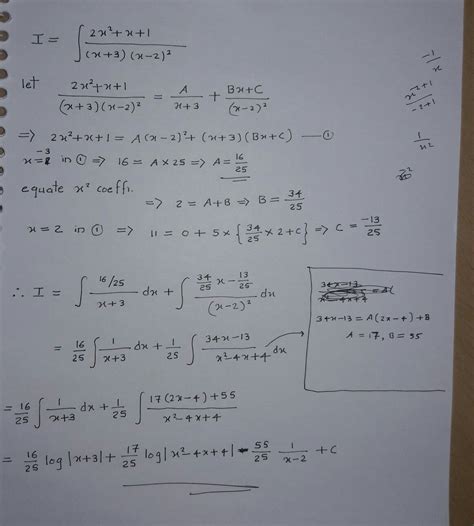 I = ∫ (2x²+x+1)/((x+3)(x-2)²)
let (2x²+x+1)/((x+3)(x-2)²) = A/(x+3) + (Bx+C)/(x-2)²
⇒ 2x²+x+1 = A(x-2)² + (x+3)(Bx+C) — ①
x=-3 in ① ⇒ 16 = A×25 ⇒ A = 16/25
equate x² coeffi.
⇒ 2 = A+B ⇒ B = 34/25
x=2 in ① ⇒ 11 = 0 + 5×{34/25 ×2 + C} ⇒ C = -13/25
∴ I = ∫ (16/25)/(x+3) dx + ∫ (34/25 x - 13/25)/(x-2)² dx
= 16/25 ∫ 1/(x+3) dx + 1/25 ∫ (34x-13)/(x²-4x+4) dx
= 16/25 ∫ 1/(x+3) dx + 1/25 ∫ (17(2x-4)+55)/(x²-4x+4)
= 16/25 log|x+3| + 17/25 log|x²-4x+4| - 55/25 1/(x-2) + C
-1/x
x^(-2+1)/(-2+1)
1/x²
34x-13 = A(2x-4)+B
A = 17, B = 55